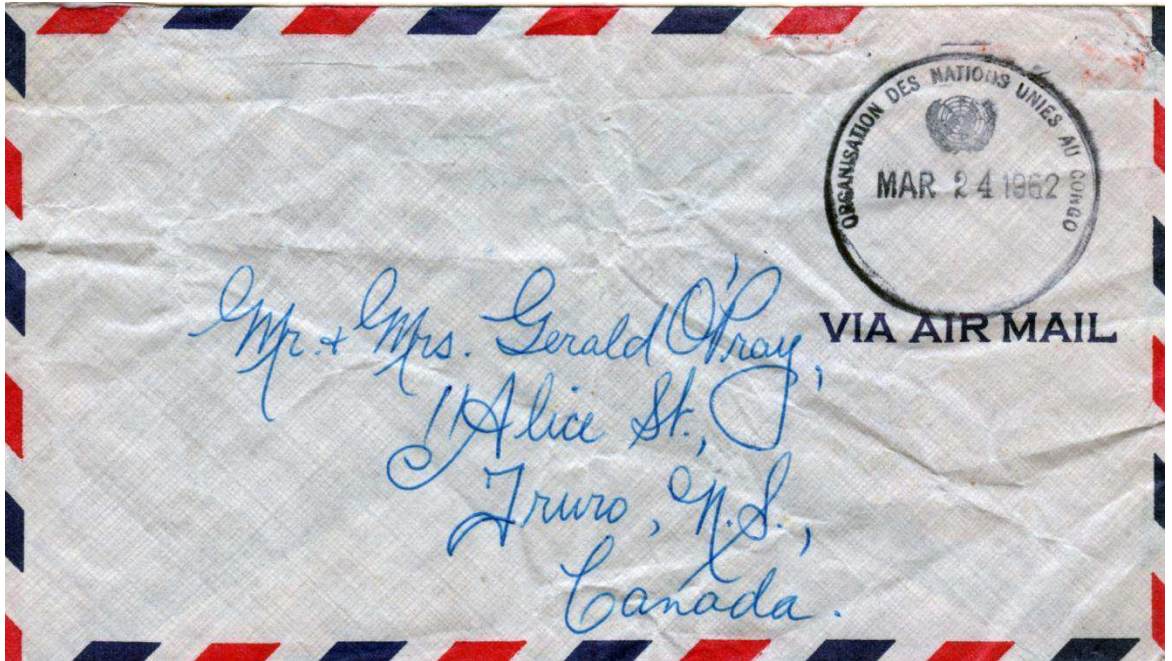 ORGANISATION DES NATIONS UNIES AU CONGO
MAR 24 1962
VIA AIR MAIL
Mr. + Mrs. Gerald O'Pray,
11 Alice St.,
Truro, N.S.,
Canada.